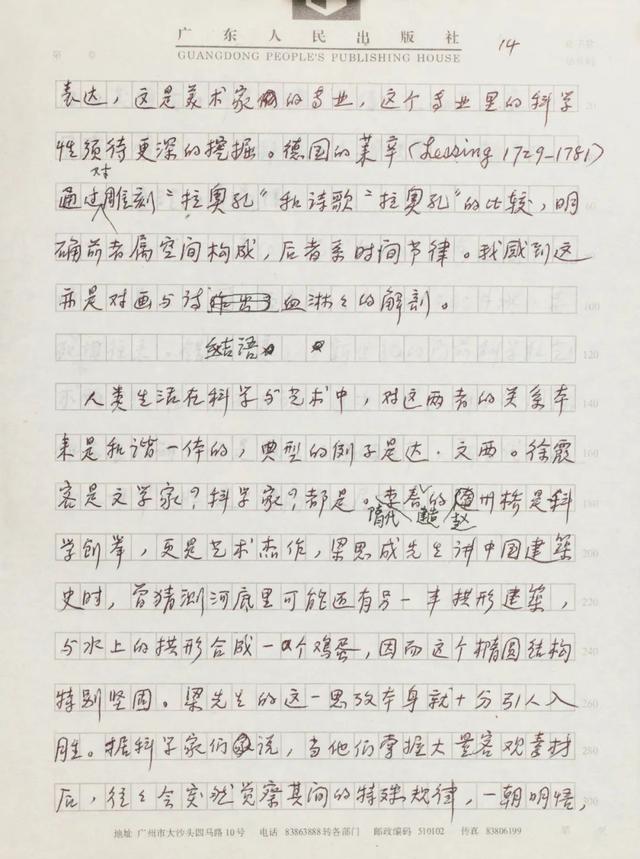 广东人民出版社
GUANGDONG PEOPLE'S PUBLISHING HOUSE
14
表达，这是美术家的专业，这个专业里的科学
性须待更深的挖掘。德国的莱辛（Lessing 1729-1781）
对
通过雕刻“拉奥孔”和诗歌“拉奥孔”的比较，明
确前者属空间构成，后者系时间节律。我感到这
亦是对画与诗血淋々的解剖。
100
结语
120
人类生活在科学与艺术中，对这两者的关系本
140
来是和谐一体的，典型的例子是达·文西。徐霞
160
客是文学家？科学家？都是。李春的州桥是科
180
隋代 建造 赵
学创举，更是艺术杰作，梁思成先生讲中国建筑
200
史时，曾猜测河底里可能还有另一半拱形建筑，
220
与水上的拱形合成一个鸡蛋，因而这个椭圆结构
240
特别坚固。梁先生的这一思考本身就十分引人入
260
胜。据科学家们说，当他们掌握大量客观素材
280
后，往々会突然觉察其间的特殊规律，一朝明悟，
地址 广州市大沙头四马路10号 电话 83863888转各部门 邮政编码 510102 传真 83806199